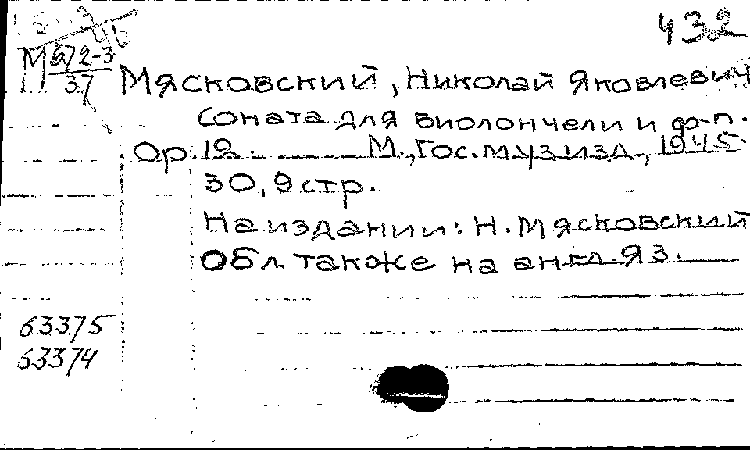 432
М 672-3
37
Мясковский, Николай Яковлевич
Соната для виолончели и ф-п.
Ор. 12. М., Гос. музизд, 1945.
30, 9 стр.
На издании: Н. Мясковский
Обл. также на англ. яз.
63375
63374